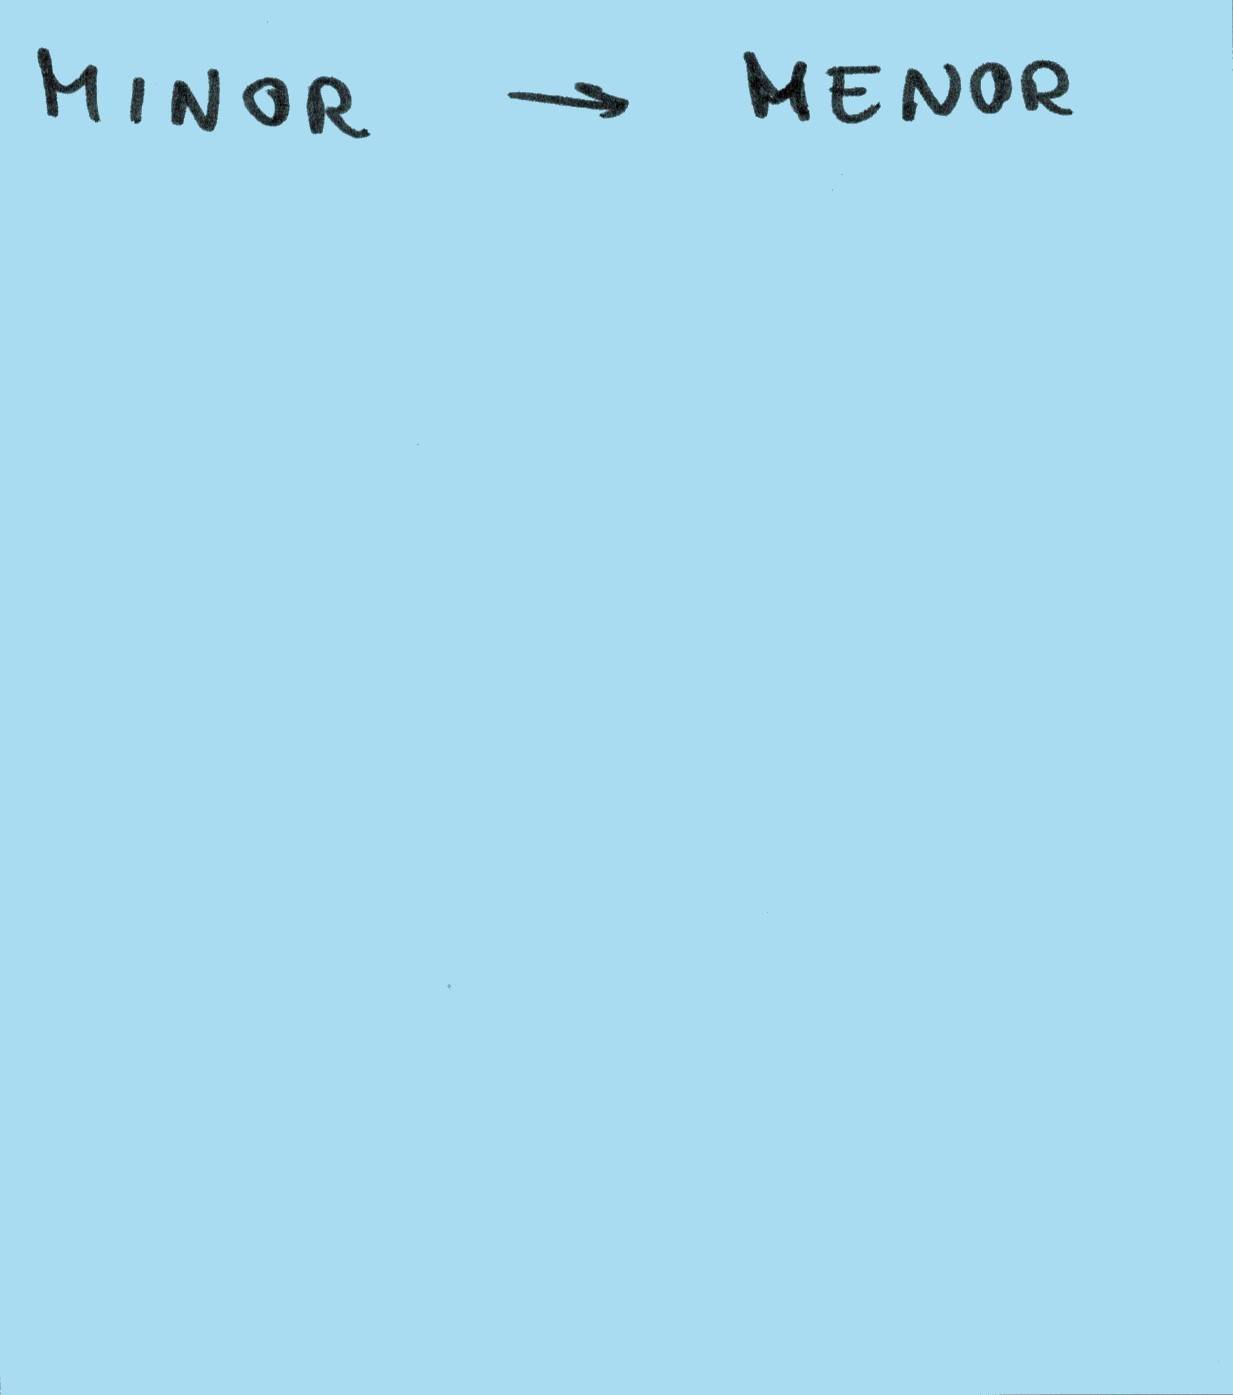 MINOR → MENOR